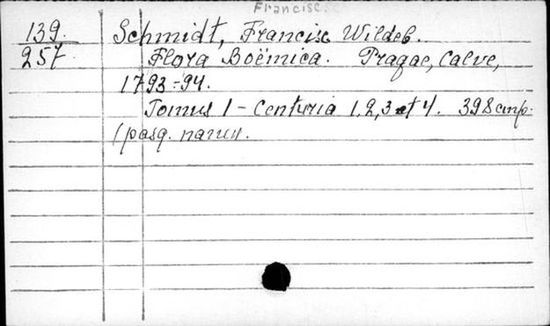 Francisc.
139 Schmidt, Francisc Wildeb.
257 Flora Boëmica. Pragae, Calve,
1793-94.
Tomus I - Centuria 1, 2, 3 et 4. 398
(pasq.